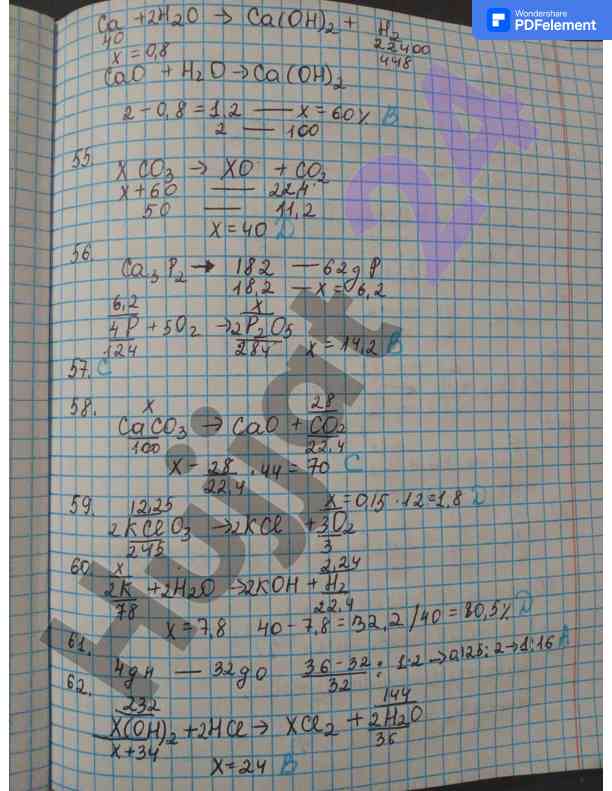 Wondershare
PDFelement
Ca + 2H2O → Ca(OH)2 + H2
40 22400
x = 0,8 448
CaO + H2O → Ca(OH)2
2 - 0,8 = 1,2 — x = 60% B
2 — 100
55. XCO3 → XO + CO2
x + 60 — 22,4
50 — 11,2
x = 40 D
56. Ca3P2 → 182 — 62g P
18,2 — x = 6,2
6,2 x
4P + 5O2 → 2P2O5
124 284 x = 14,2 B
57. C
58. x 28
CaCO3 → CaO + CO2
100 22,4
x - 28/22,4 · 44 = 70 C
59. 12,25 x = 0,15 · 12 = 1,8 D
2KClO3 → 2KCl + 3O2
245 3
60. x 2,24
2K + 2H2O → 2KOH + H2
78 22,4
x = 7,8 40 - 7,8 = 32,2 / 40 = 80,5% D
61. 4g H — 32g O 36 - 32 / 32 : 1·2 → 0,125 : 2 → 1 : 16 A
62. 232 144
X(OH)2 + 2HCl → XCl2 + 2H2O
x + 34 36
x = 24 B
Hujjat 24